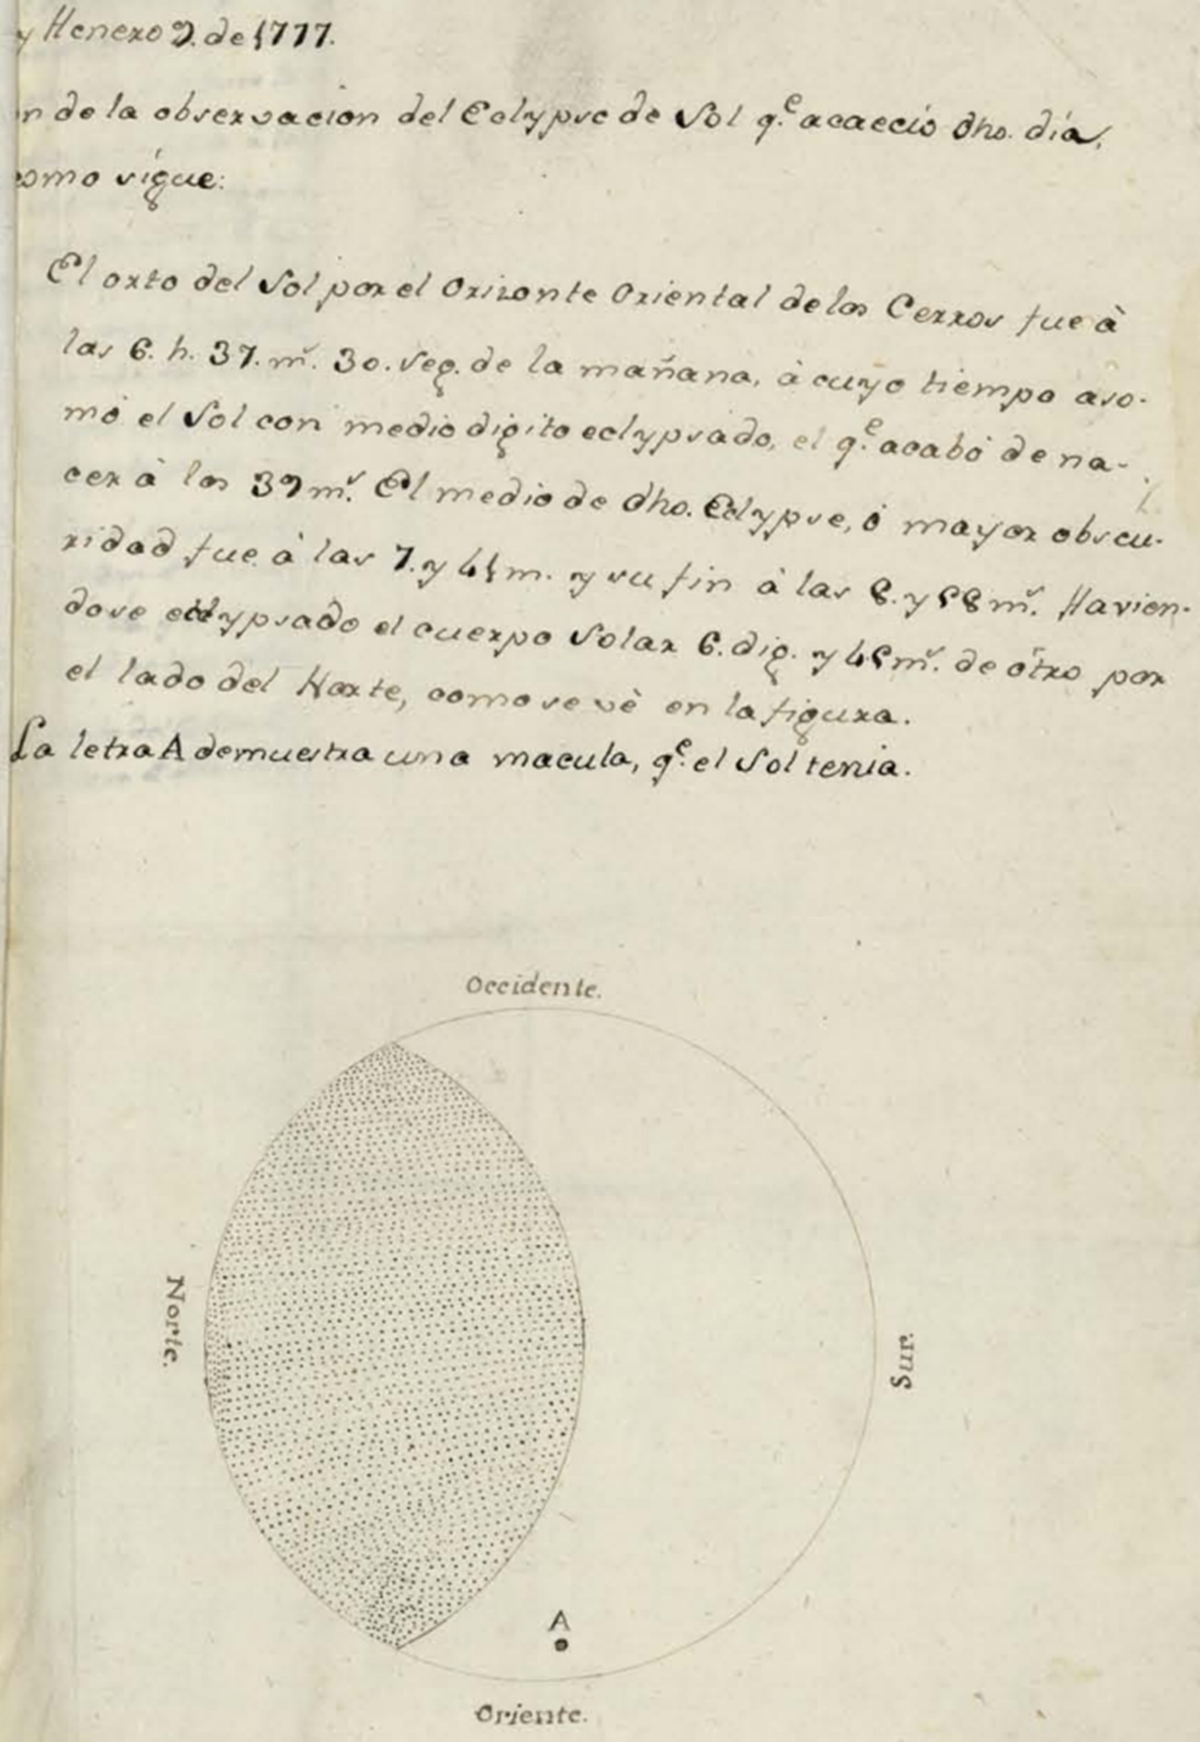 y Henero 9. de 1777.
n de la observacion del Eclypse de Sol q.e acaeciò dho. día,
omo sigue:
El orto del Sol por el Orizonte Oriental de los Cerros fue à
las 6. h. 37. ms. 30. seg. de la mañana, à cuyo tiempo aso-
mò el Sol con medio digito eclypsado, el q.e acabò de na-
cer à los 39 ms. El medio de dho. Eclypse, ò mayor obscu-
ridad fue à las 7. y 41 m. y su fin à las 8. y 58 ms. Havien-
dose eclypsado el cuerpo Solar 6. dig. y 45 ms. de òtro por
el lado del Norte, como se vè en la figura.
La letra A demuestra una macula, q.e el Sol tenia.
Occidente.
Norte.
Sur.
A
Oriente.